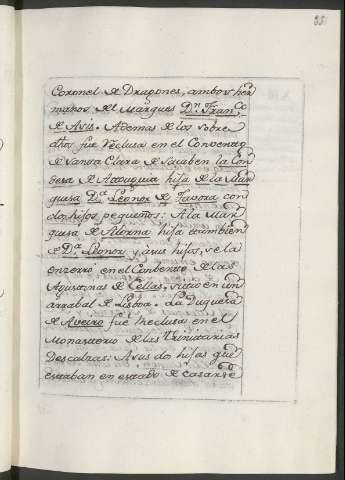 Coronel de Dragones, ambos her
manos del Marques Dn. Franco.
de Asis. Ademas de los sobre
dhos fue reclusa en el Convento
de Santa Clara de Sacaben la Con
desa de Atouguia hija de la Mar
quesa Da. Leonor de Tavora con
dos hijos pequeños: A la Mar
quesa de Alorna hija tambien
de Da. Leonor y à sus hijos, se la
enzerro en el Combento de las
Agustinas de Cellas, sitio en un
arrabal de Lisboa. La Duquesa
de Aveiro fue reclusa en el
Monasterio de las Trinitarias
Descalzas: A sus dos hijas que
estaban en estado de casarse